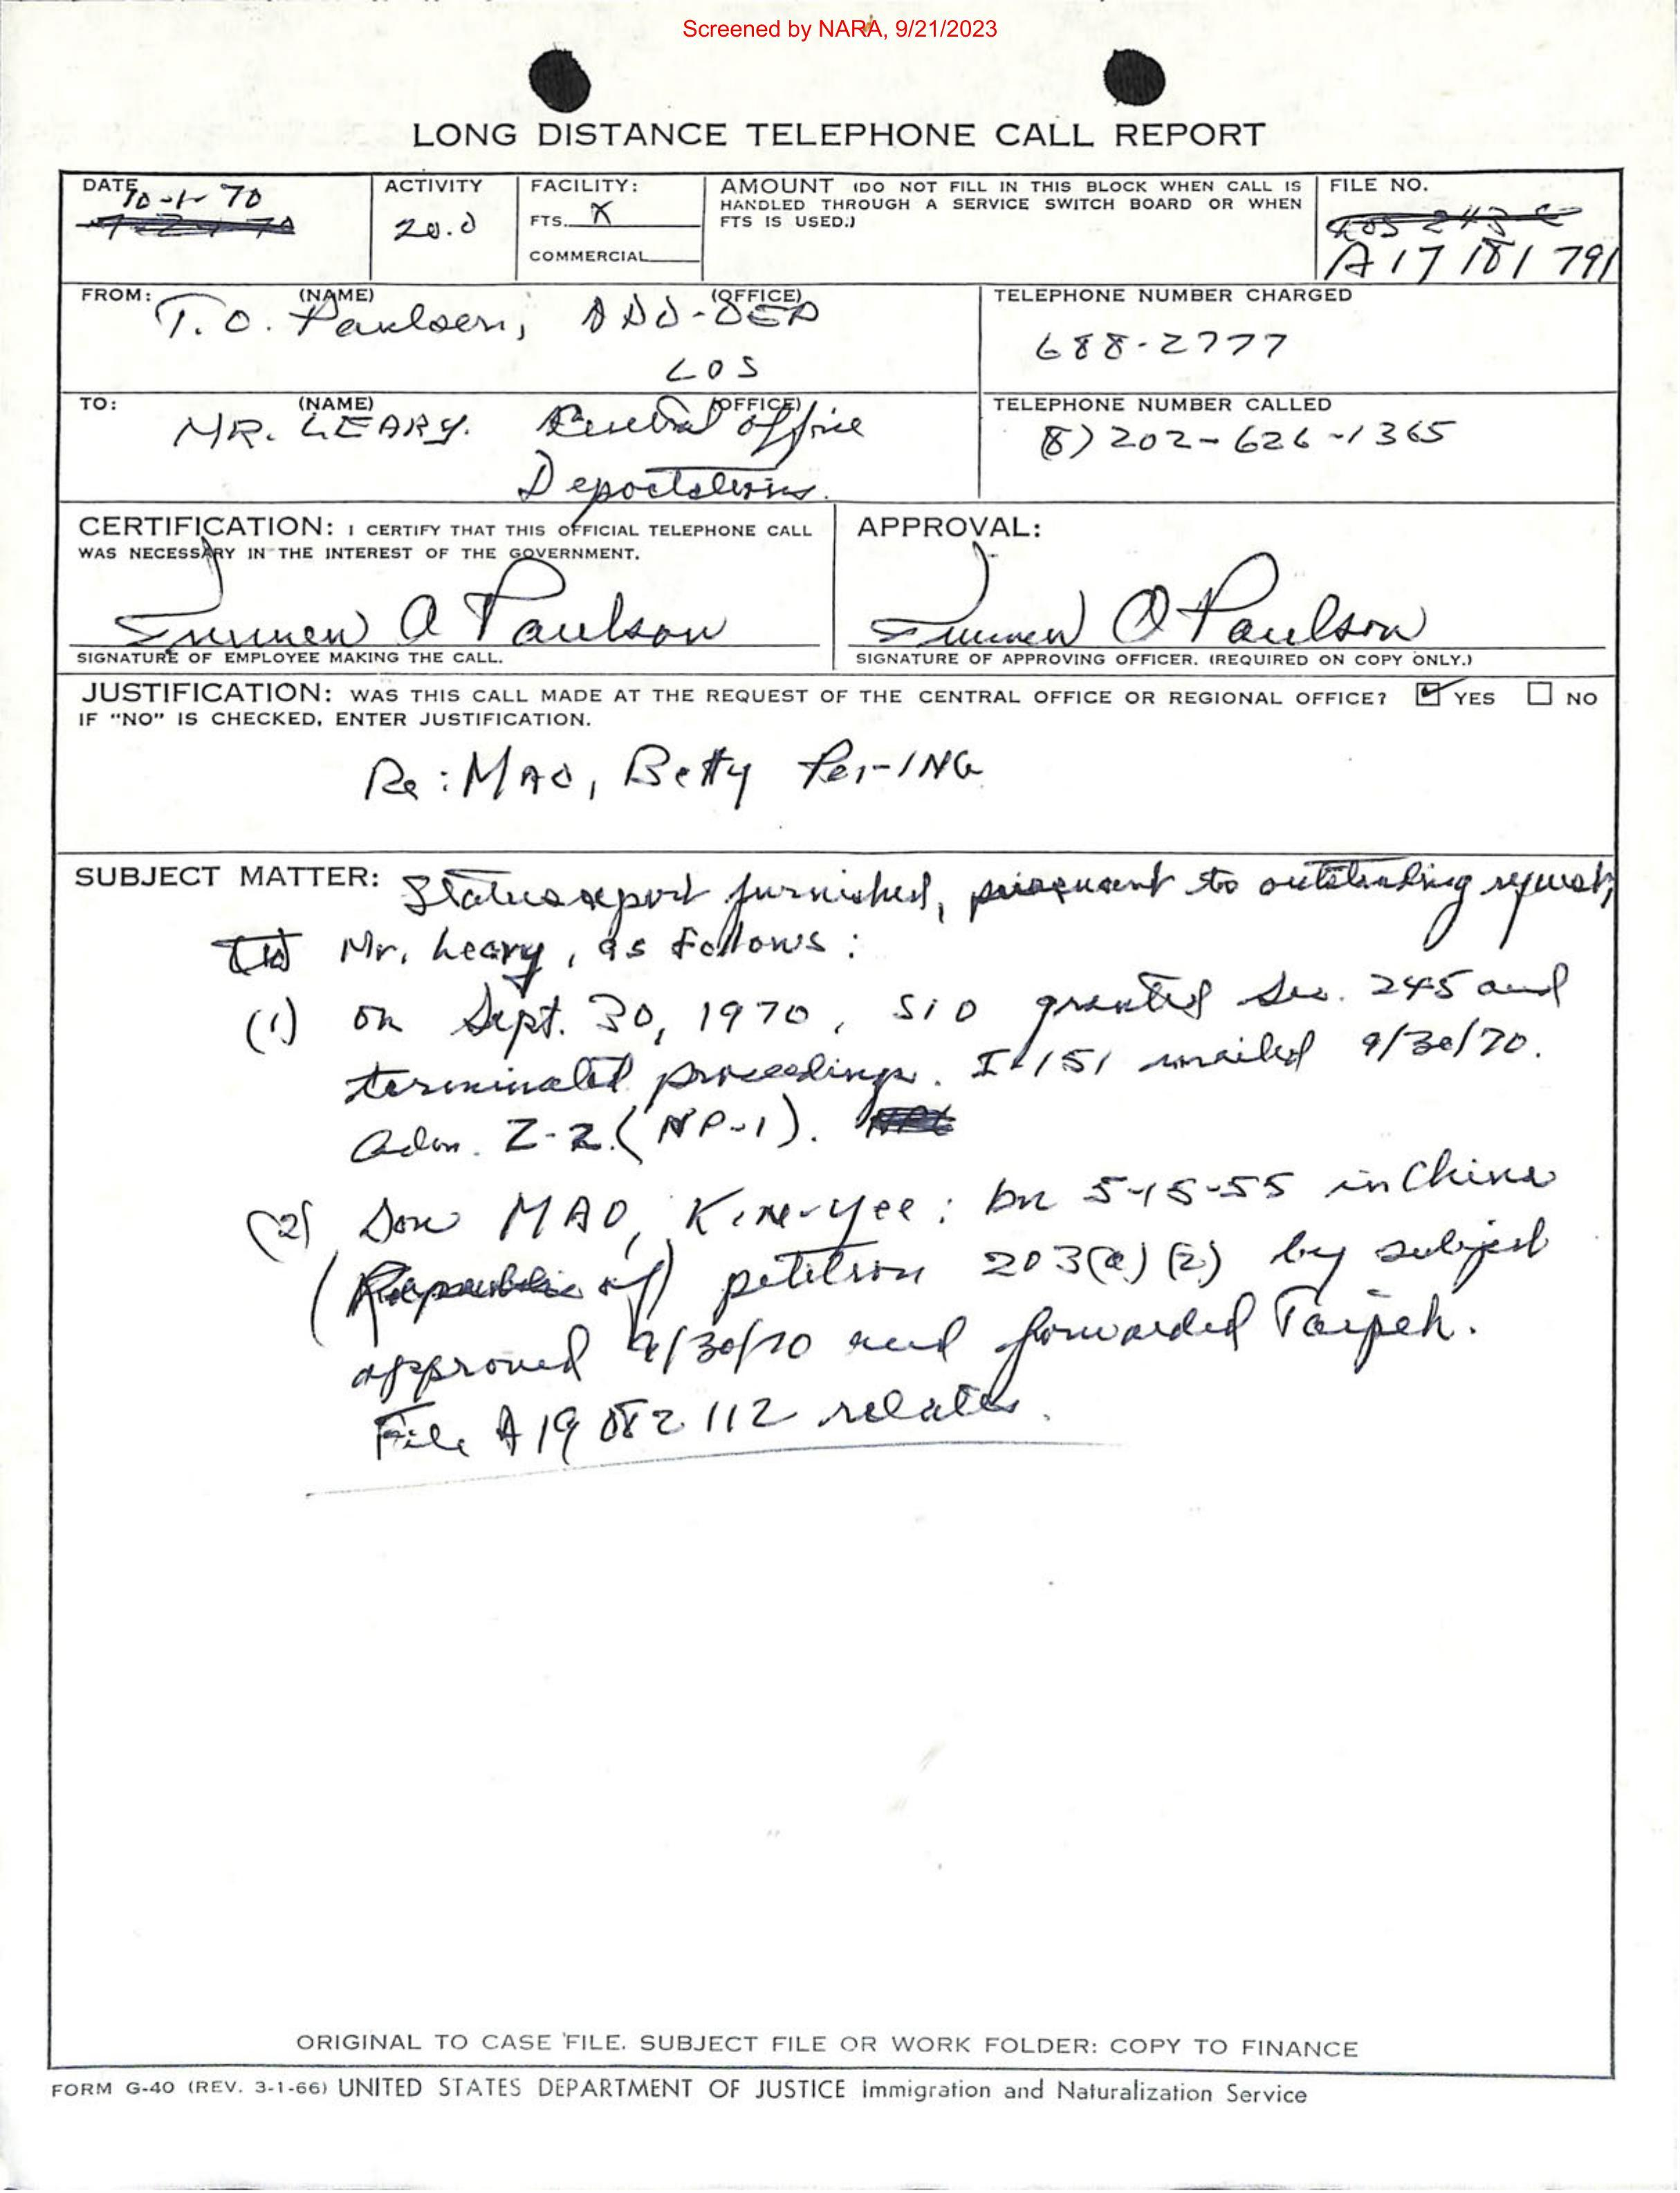 Screened by NARA, 9/21/2023
LONG DISTANCE TELEPHONE CALL REPORT
DATE
10-1-70
ACTIVITY
20.0
FACILITY:
FTS. X
COMMERCIAL
AMOUNT (DO NOT FILL IN THIS BLOCK WHEN CALL IS
HANDLED THROUGH A SERVICE SWITCH BOARD OR WHEN
FTS IS USED.)
FILE NO.
A17 181 791
FROM: (NAME) (OFFICE)
T. O. Paulson, ADD-
LOS
TELEPHONE NUMBER CHARGED
688-2777
TO: (NAME) (OFFICE)
MR. LEARY. Central office
Deportations.
TELEPHONE NUMBER CALLED
(8) 202-626-1365
CERTIFICATION: I CERTIFY THAT THIS OFFICIAL TELEPHONE CALL
WAS NECESSARY IN THE INTEREST OF THE GOVERNMENT.
O Paulson
SIGNATURE OF EMPLOYEE MAKING THE CALL.
APPROVAL:
O Paulson
SIGNATURE OF APPROVING OFFICER. (REQUIRED ON COPY ONLY.)
JUSTIFICATION: WAS THIS CALL MADE AT THE REQUEST OF THE CENTRAL OFFICE OR REGIONAL OFFICE? YES NO
IF "NO" IS CHECKED, ENTER JUSTIFICATION.
Re: MAO, Betty Pei-ING
SUBJECT MATTER: Status report furnished, pursuant to outstanding request,
to Mr. Leary, as follows:
(1) on Sept. 30, 1970, SIO granted Sec. 245 and
terminated proceedings. I-151 mailed 9/30/70.
Adm. Z-2. (NP-1).
(2) Son MAO, King-Yee: bn 5-15-55 in China
(Republic of) petition 203(a)(2) by subject
approved 9/30/70 and forwarded Taipeh.
File A19 082 112 relates.
ORIGINAL TO CASE FILE. SUBJECT FILE OR WORK FOLDER: COPY TO FINANCE
FORM G-40 (REV. 3-1-66) UNITED STATES DEPARTMENT OF JUSTICE Immigration and Naturalization Service